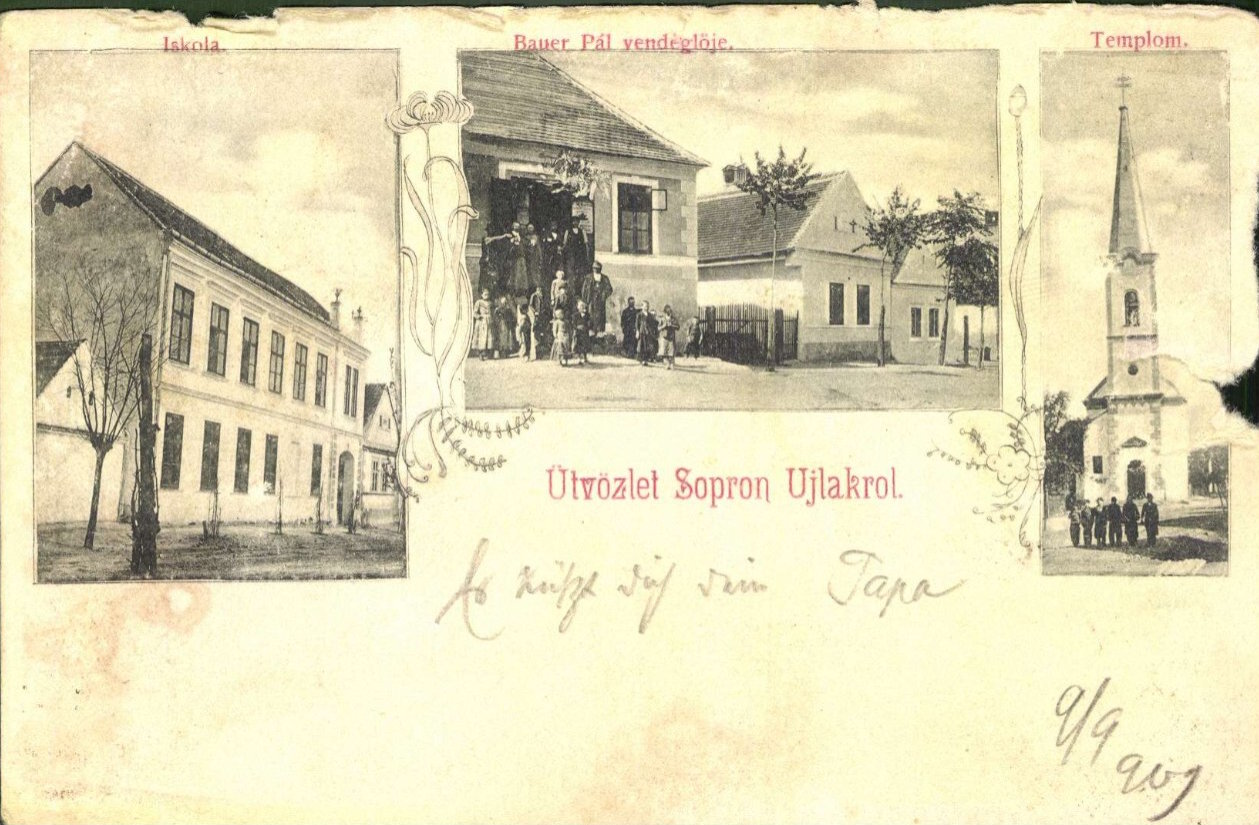 Iskola.
Bauer Pál vendeglöje.
Templom.
Ütvözlet Sopron Ujlakrol.
Es küßt dich dein Papa
9/9
909